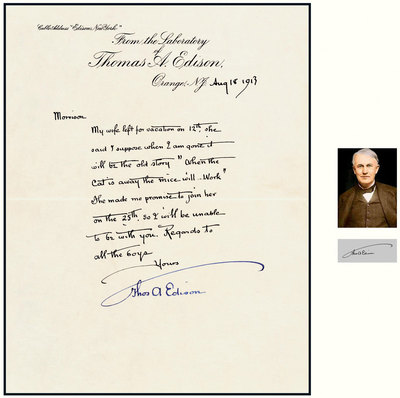 Cable Address "Edison, New York."
From the Laboratory
of
Thomas A. Edison,
Orange, N.J. Aug 18 1913
Morrison
My wife left for vacation on 12th she
said I suppose when I am gone it
will be the old story "When the
Cat is away the mice will - Work"
She made me promise to join her
on the 25th, so I will be unable
to be with you. Regards to
all the boys
Yours
Thos A Edison
Thos A Edison